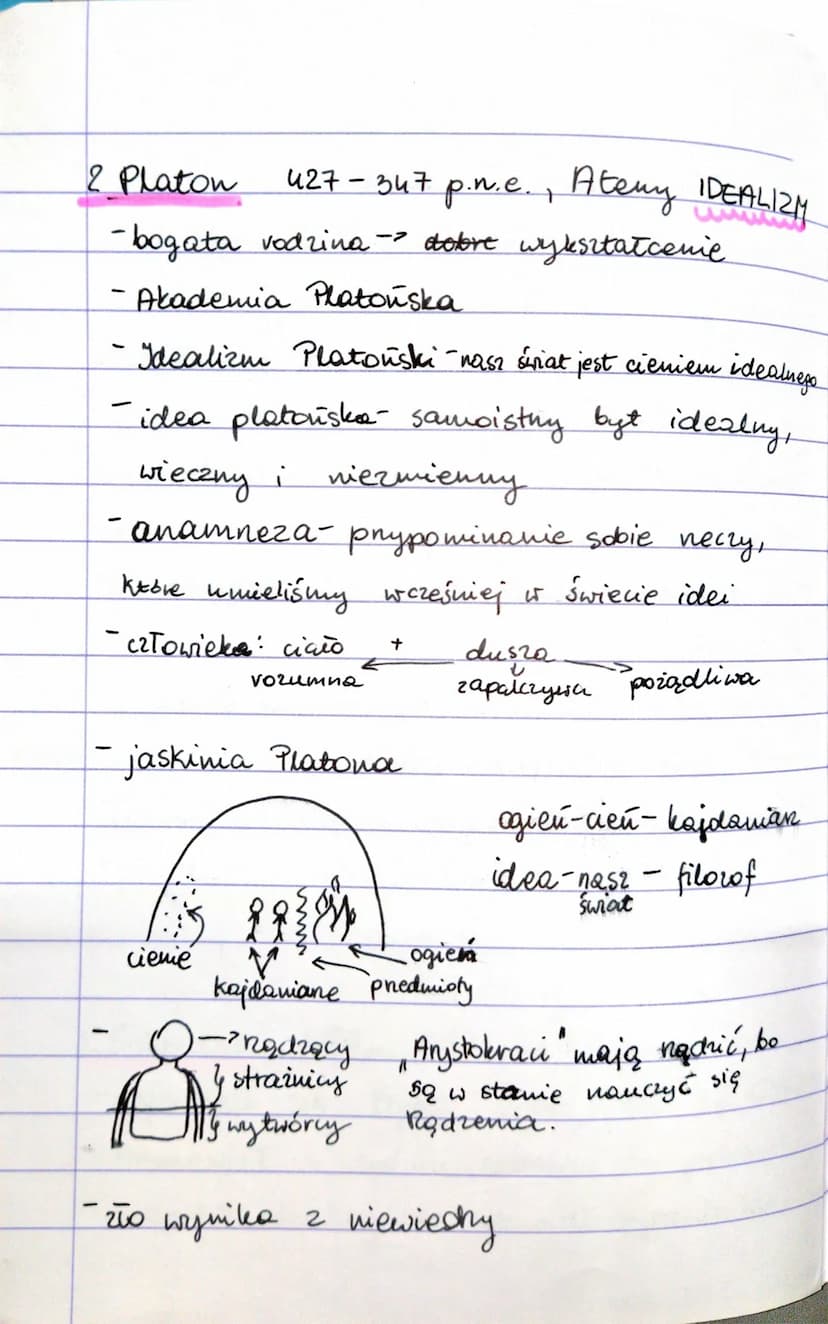 2 Platon 427 - 347 p.n.e., Ateny IDEALIZM
- bogata rodzina -> dobre wykształcenie
- Akademia Platońska
- Idealizm Platoński - nasz świat jest cieniem idealnego
- idea platońska - samoistny byt idealny,
wieczny i niezmienny
- anamneza - przypominanie sobie rzeczy,
które umieliśmy wcześniej w świecie idei
- człowiek: ciało + dusza
rozumna zapalczywa pożądliwa
- jaskinia Platona
ogień - cień - kajdaniarz
idea - nasz - filozof
świat
cienie ogień
kajdaniane przedmioty
- -> rządzący „Arystokraci" mają rządzić, bo
} strażnicy są w stanie nauczyć się
} wytwórcy Rządzenia.
- zło wynika z niewiedzy